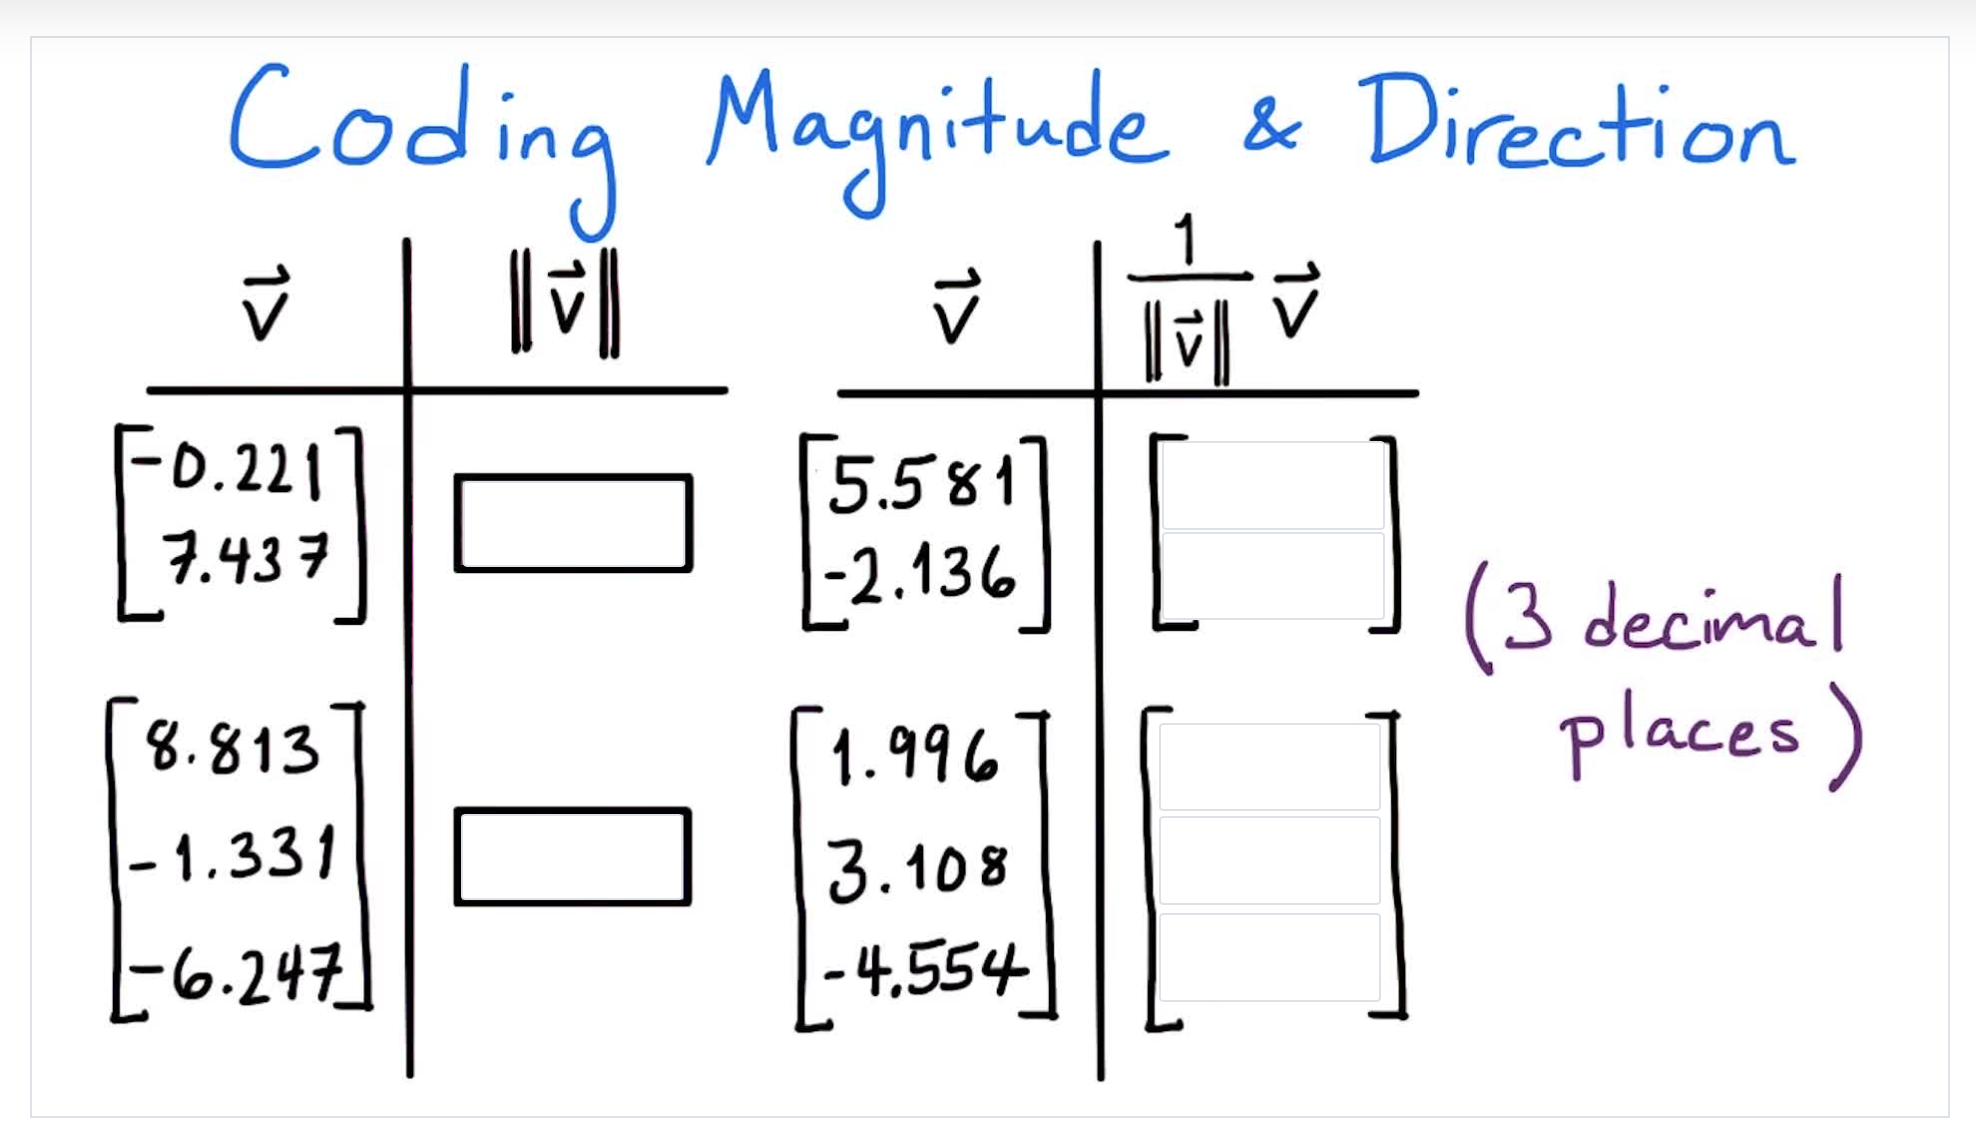 Coding Magnitude & Direction
v⃗ ‖v⃗‖
-0.221
7.437
8.813
-1.331
-6.247
v⃗ 1/‖v⃗‖ v⃗
5.581
-2.136
1.996
3.108
-4.554
(3 decimal
places)